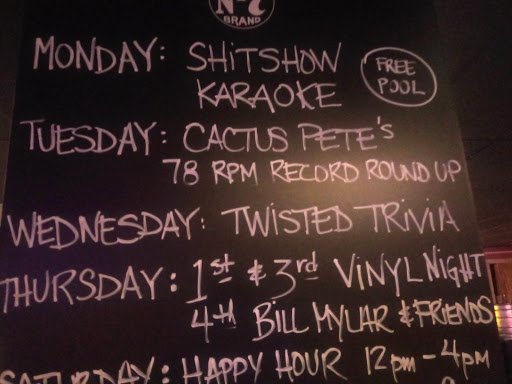 N-7
BRAND
MONDAY: SHiTSHOW
KARAOKE
FREE
POOL
TUESDAY: CACTUS PETE's
78 RPM RECORD ROUND UP
WEDNESDAY: TWISTED TRIVIA
THURSDAY: 1st & 3rd ViNYL NIGHT
4th BILL MYLAR & FRIENDS
SATURDAY: HAPPY HOUR 12pm - 4pm